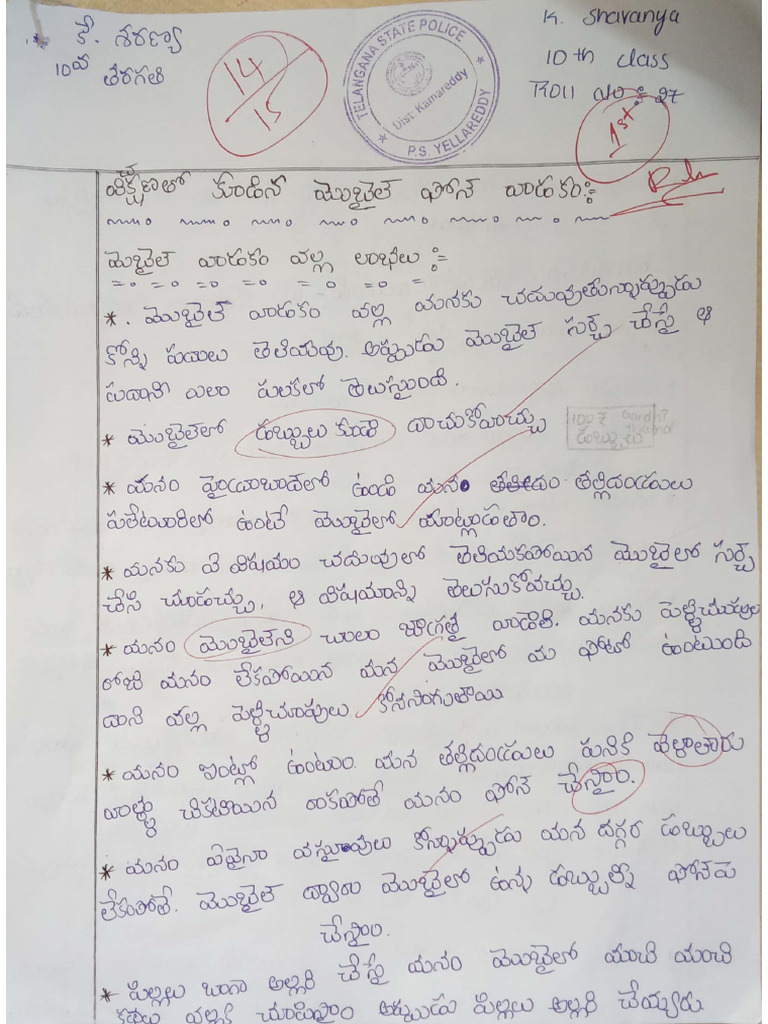 కే. శరణ్య
10వ తరగతి
14/15
TELANGANA STATE POLICE
Dist. Kamareddy
P.S. YELLAREDDY
K. Shavanya
10th class
Roll No :- 27
1st
విక్షణతో కూడిన మొబైల్ ఫోన్ వాడకం:-
మొబైల్ వాడకం వల్ల లాభలు :-
* . మొబైల్ వాడకం వల్ల మనకు చదువుతున్నప్పుడు
కోన్ని పదాలు తెలియవు. అప్పుడు మొబైల్ సర్చ్ చేస్తే ఆ
పదాని ఎలా పలకలో తెలుస్తుంది.
* మొబైల్‌లో డబ్బులు కూడా దాచుకోవచ్చు
100₹ Gandhi
డబ్బులు
* మనం హైదాబాద్‌లో ఉండి మనం తల్లిదండులు
పలేటూరిలో ఉంటే మొబైలో మాట్లుడతాం.
* మనకు ఏ విషయం చదువులో తెలియకపోయిన మొబైలో సర్చ్
చేసి చూడచ్చు, ఆ విషయాన్ని తెలుసుకోవచ్చు.
* మనం మొబైల్‌ని చాలా జాగ్రత్త వాడాలి. మనకు పెళ్ళిచూపుల
రోజు మనం లేకపోయిన మన మొబైలో మ ఫోటో ఉంటుంది
దాని వల్ల పెళ్ళిచూపులు కోనసింగుతాయి
* మనం ఇంట్లో ఉంటాం. మన తల్లిదండులు పనికి వెళాతారు
వాళ్ళు చికటయిన రాకపోతే మనం ఫోన్ చేస్తాం.
* మనం ఏవైనా వస్తూవులు కోన్నప్పుడు మన దగ్గర డబ్బులు
లేకపోతే. మొబైల్ ద్వారా మొబైలో ఉన్న డబ్బుల్ని ఫోన్‌పె
చేస్తాం.
* పిల్లలు బాగా అల్లరి చేస్తే మనం మొబైలో మంచి మంచి
కథలు వాళ్లకి చూపిస్తాం అప్పుడు పిల్లలు అల్లరి చేయ్యరు.